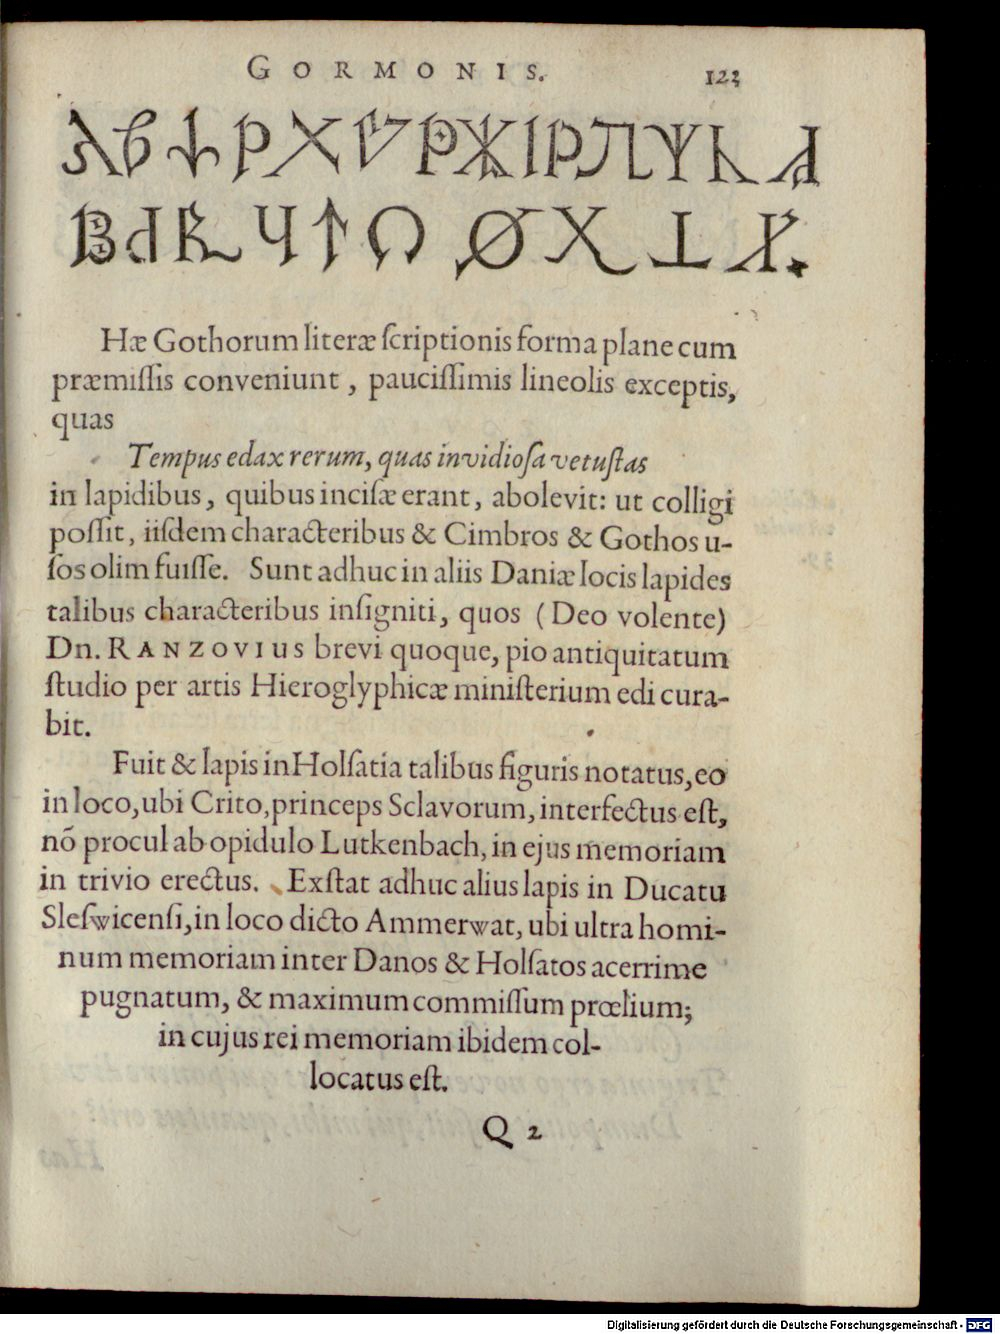 GORMONIS. 123
Hæ Gothorum literæ ſcriptionis forma plane cum
præmiſſis conveniunt, pauciſſimis lineolis exceptis,
quas
Tempus edax rerum, quas invidioſa vetuſtas
in lapidibus, quibus inciſæ erant, abolevit: ut colligi
poſſit, iiſdem characteribus & Cimbros & Gothos u-
ſos olim fuiſſe. Sunt adhuc in aliis Daniæ locis lapides
talibus characteribus inſigniti, quos (Deo volente)
Dn. RANZOVIUS brevi quoque, pio antiquitatum
ſtudio per artis Hieroglyphicæ miniſterium edi cura-
bit.
Fuit & lapis in Holſatia talibus figuris notatus, eo
in loco, ubi Crito, princeps Sclavorum, interfectus eſt,
nõ procul ab opidulo Lutkenbach, in ejus memoriam
in trivio erectus. Exſtat adhuc alius lapis in Ducatu
Sleſwicenſi, in loco dicto Ammerwat, ubi ultra homi-
num memoriam inter Danos & Holſatos acerrime
pugnatum, & maximum commiſſum prœlium;
in cujus rei memoriam ibidem col-
locatus eſt.
Q 2
Digitalisierung gefördert durch die Deutsche Forschungsgemeinschaft - DFG